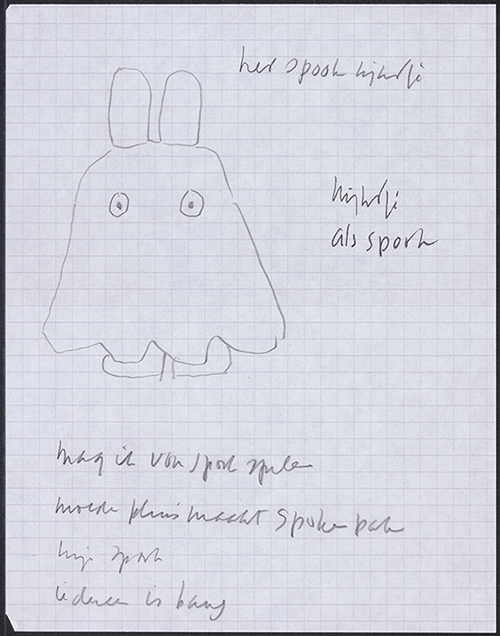 het spook nijntje
nijntje
als spook
mag ik van spook spelen
moeder pluis maakt spokepak
nijn spook
iedereen is bang